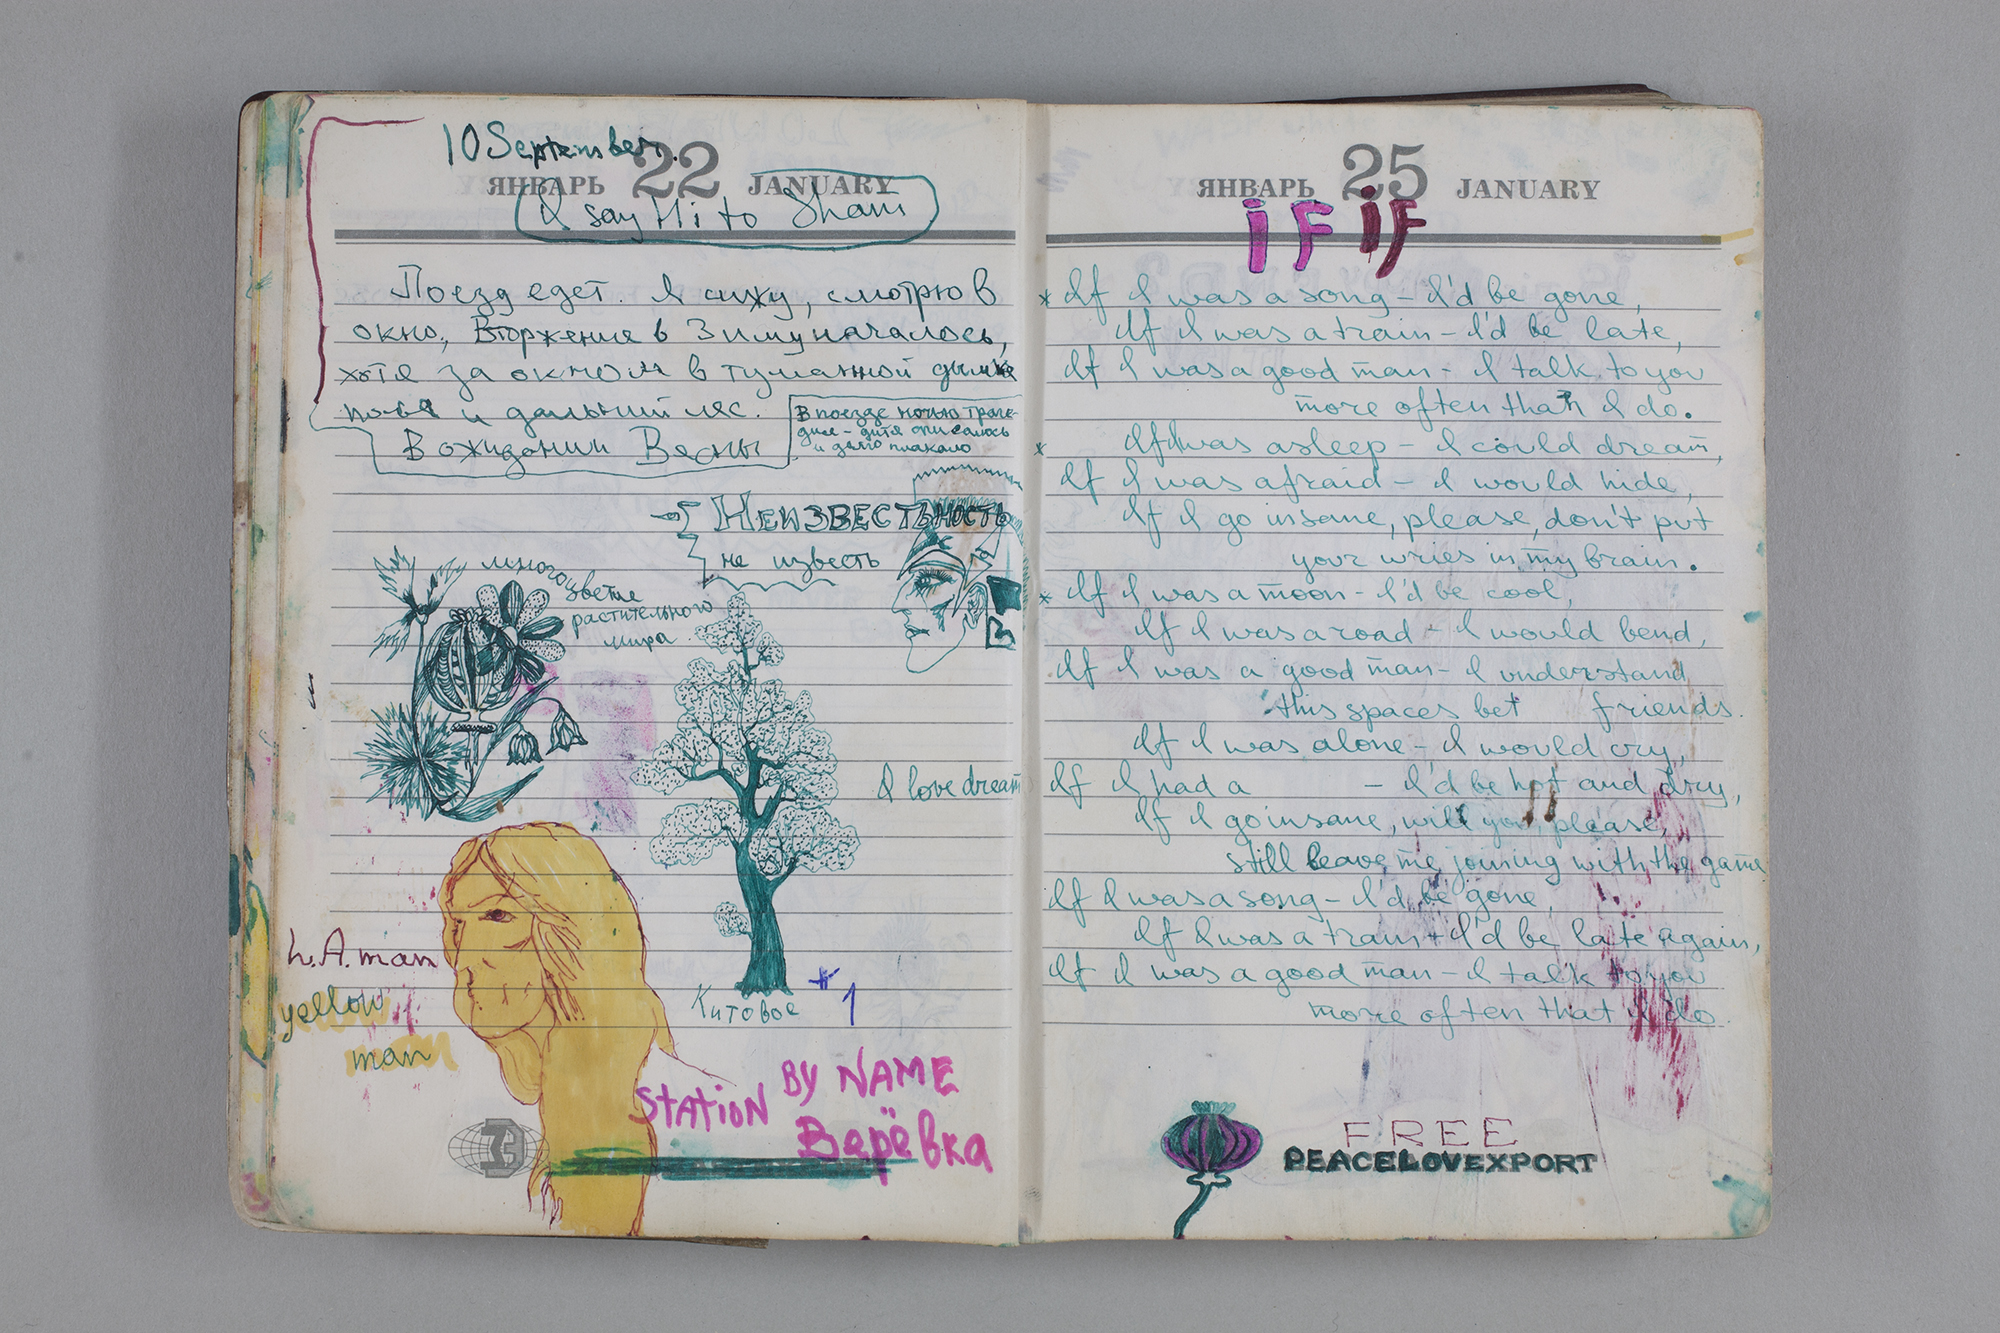 10 September.
ЯНВАРЬ 22 JANUARY
I say Hi to Sham
Поезд едет. Я сижу, смотрю в
окно, Вторжение в Зиму началось,
хотя за окном в туманной дымке
поля и дальний лес.
В ожидании Весны
В поезде ночью траге-
дия - дитя описалось
и долго плакало
НЕИЗВЕСТЬНОСТЬ
не известь
многоцветие
растительного
мира
I love dream
L.A. man
yellow
man
Китовое
#1
STATION BY NAME
Верёвка
ЯНВАРЬ 25 JANUARY
iF iF
* If I was a song - I'd be gone,
If I was a train - I'd be late,
If I was a good man - I talk to you
more often than I do.
* If I was asleep - I could dream,
If I was afraid - I would hide,
If I go insane, please, don't put
your wries in my brain.
* If I was a moon - I'd be cool,
If I was a road - I would bend,
If I was a good man - I understand
this spaces bet friends.
If I was alone - I would cry,
If I had a - I'd be hot and dry,
If I go insane, will you, please,
still leave me joining with the game
If I was a song - I'd be gone,
If I was a train - I'd be late again,
If I was a good man - I talk to you
more often that I do.
FREE
PEACELOVEXPORT